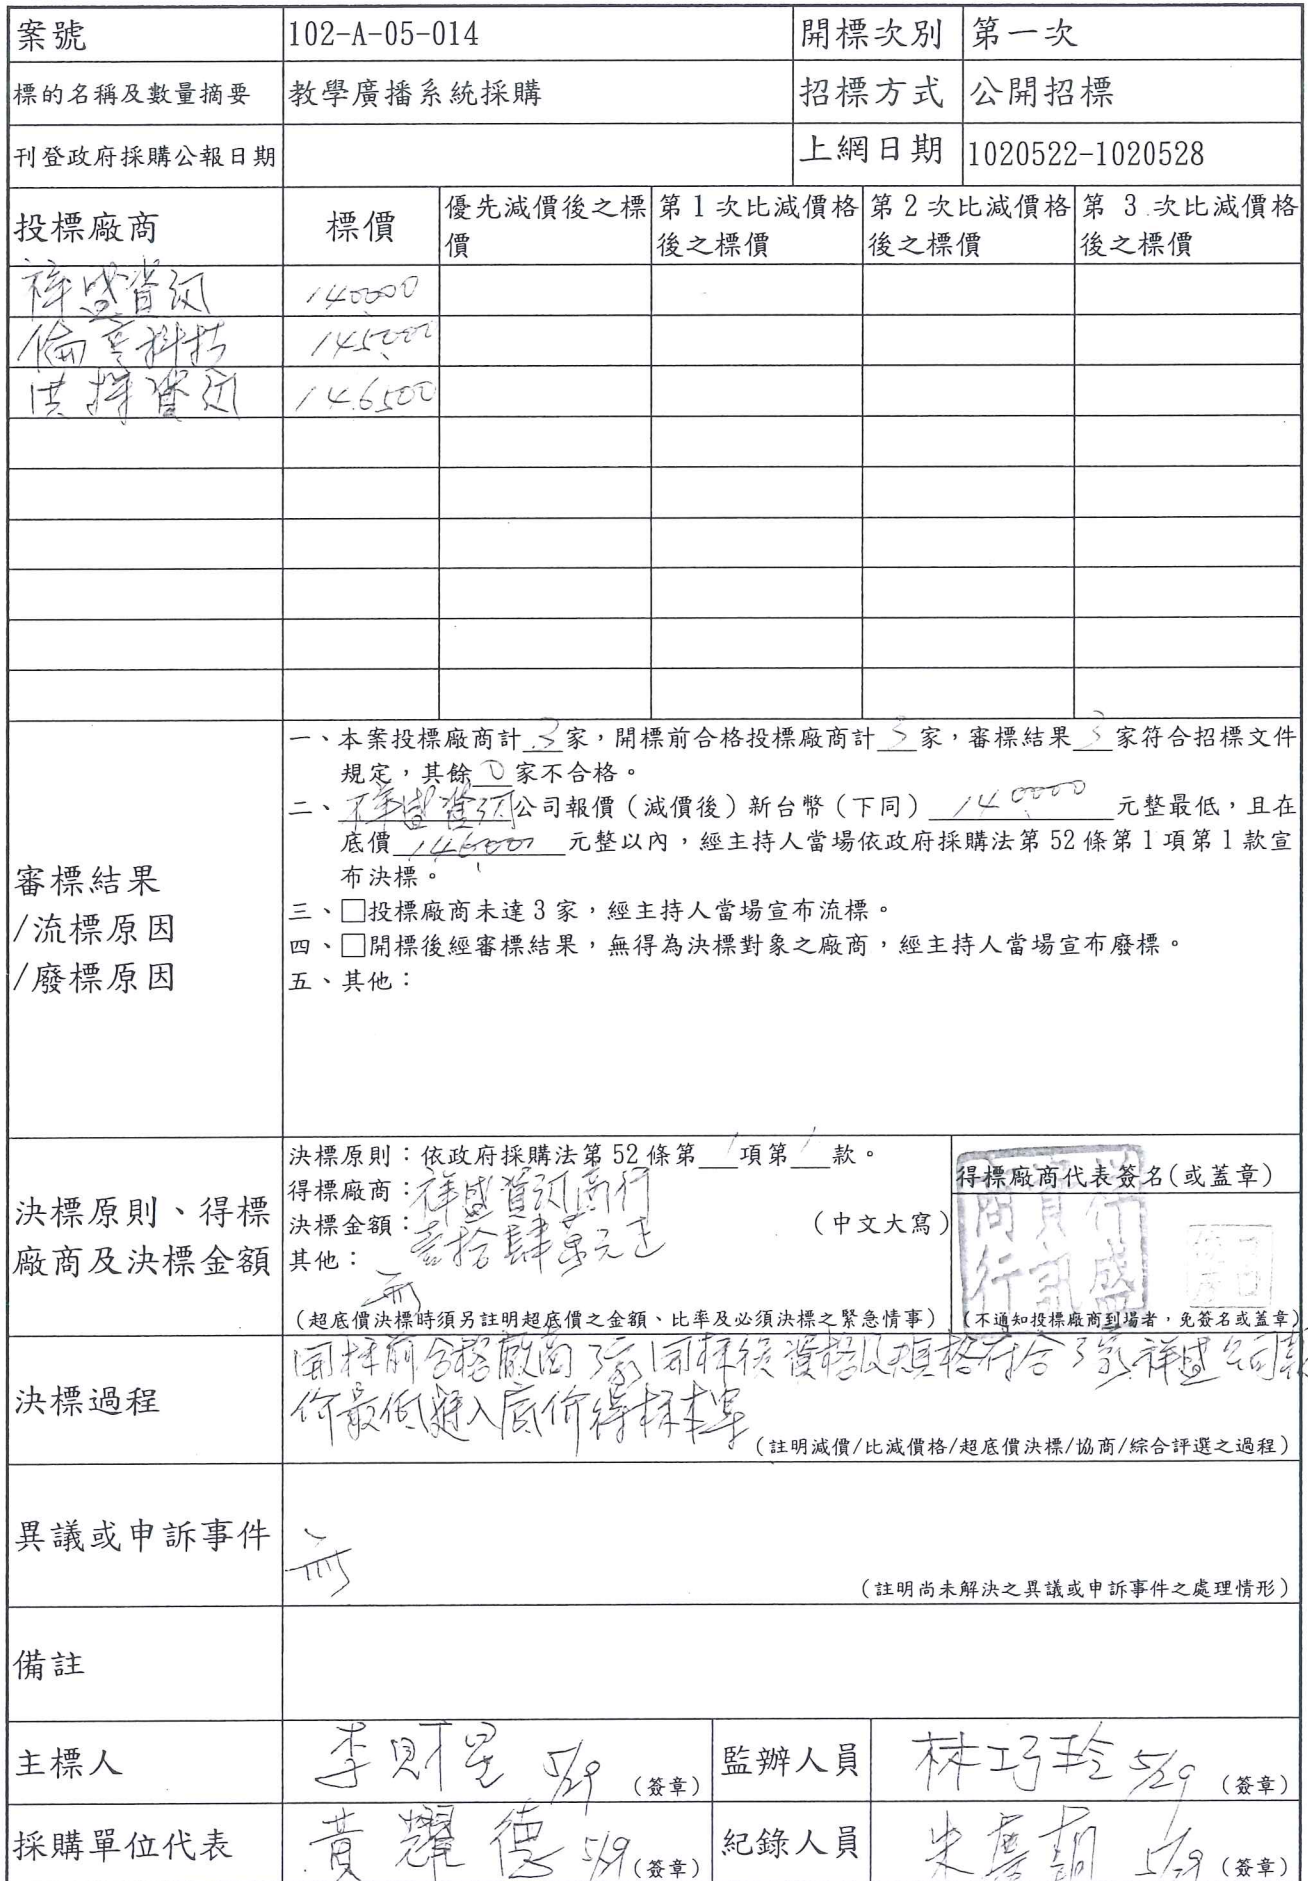 案號 102-A-05-014 開標次別 第一次
標的名稱及數量摘要 教學廣播系統採購 招標方式 公開招標
刊登政府採購公報日期 上網日期 1020522-1020528
投標廠商 標價 優先減價後之標價 第1次比減價格後之標價 第2次比減價格後之標價 第3次比減價格後之標價
祥盛資訊 140000
倫亨科技 145000
洪祥資訊 146500
審標結果
/流標原因
/廢標原因
一、本案投標廠商計3家，開標前合格投標廠商計3家，審標結果3家符合招標文件
規定，其餘0家不合格。
二、祥盛資訊公司報價（減價後）新台幣（下同）140000元整最低，且在
底價146000元整以內，經主持人當場依政府採購法第52條第1項第1款宣
布決標。
三、□投標廠商未達3家，經主持人當場宣布流標。
四、□開標後經審標結果，無得為決標對象之廠商，經主持人當場宣布廢標。
五、其他：
決標原則、得標
廠商及決標金額
決標原則：依政府採購法第52條第1項第1款。
得標廠商：祥盛資訊商行
決標金額：壹拾肆萬元正（中文大寫）
其他：
無
（超底價決標時須另註明超底價之金額、比率及必須決標之緊急情事）
得標廠商代表簽名(或蓋章)
祥盛資訊商行
（不通知投標廠商到場者，免簽名或蓋章）
決標過程
開標前合格廠商3家，開標後資格及規格符合3家，祥盛公司報
價最低進入底價得標本案
（註明減價/比減價格/超底價決標/協商/綜合評選之過程）
異議或申訴事件
無
（註明尚未解決之異議或申訴事件之處理情形）
備註
主標人 李財星 5/29（簽章） 監辦人員 林巧玲 5/29（簽章）
採購單位代表 黃耀德 5/29（簽章） 紀錄人員 朱 5/29（簽章）